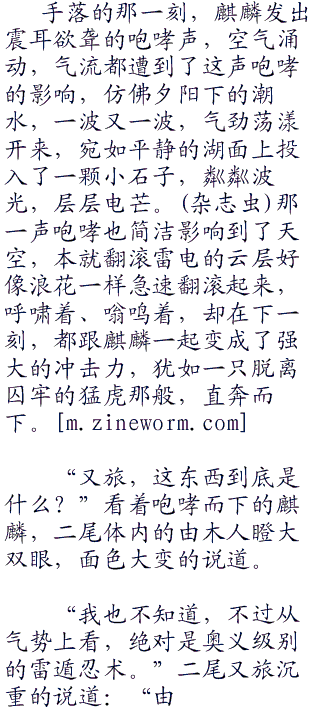 手落的那一刻，麒麟发出
震耳欲聋的咆哮声，空气涌
动，气流都遭到了这声咆哮
的影响，仿佛夕阳下的潮
水，一波又一波，气劲荡漾
开来，宛如平静的湖面上投
入了一颗小石子，粼粼波
光，层层电芒。(杂志虫)那
一声咆哮也简洁影响到了天
空，本就翻滚雷电的云层好
像浪花一样急速翻滚起来，
呼啸着、嗡鸣着，却在下一
刻，都跟麒麟一起变成了强
大的冲击力，犹如一只脱离
囚牢的猛虎那般，直奔而
下。[m.zineworm.com]
“又旅，这东西到底是
什么？”看着咆哮而下的麒
麟，二尾体内的由木人瞪大
双眼，面色大变的说道。
“我也不知道，不过从
气势上看，绝对是奥义级别
的雷遁忍术。”二尾又旅沉
重的说道：“由